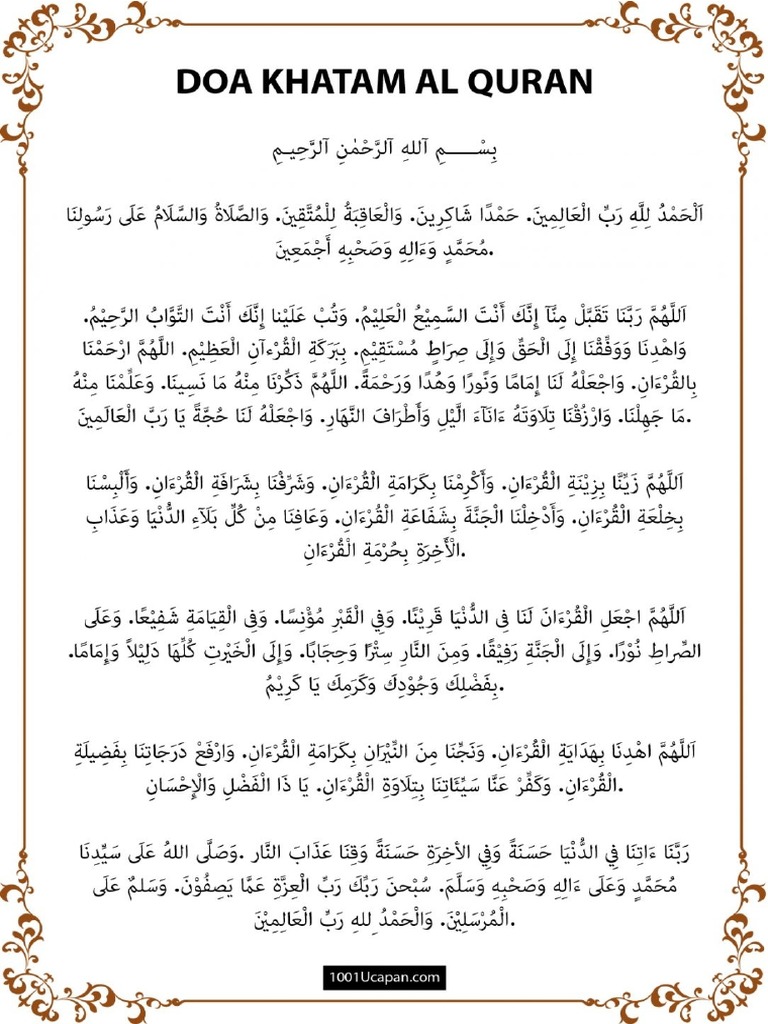 DOA KHATAM AL QURAN
بِسْــــمِ ٱللهِ ٱلرَّحْمٰنِ ٱلرَّحِيـمِ
اَلْحَمْدُ لِلَّهِ رَبِّ الْعَالِمِينَ. حَمْدًا شَاكِرِينَ. وَالْعَاقِبَةُ لِلْمُتَّقِينَ. وَالصَّلَاةُ وَالسَّلَامُ عَلَى رَسُولِنَا
مُحَمَّدٍ وَءَالِهِ وَصَحْبِهِ أَجْمَعِينَ.
اَللَّهُمَّ رَبَّنَا تَقَبَّلْ مِنَّآ إِنَّكَ أَنْتَ السَّمِيْعُ الْعَلِيْمُ. وَتُبْ عَلَيْنا إِنَّكَ أَنْتَ التَّوَّابُ الرَّحِيْمُ.
وَاهْدِنَا وَوَفِّقْنَا إِلَى الْحَقِّ وَإِلَى صِرَاطٍ مُسْتَقِيْمٍ. بِبَرَكَةِ الْقُرْءآنِ الْعَظِيْمِ. اللَّهُمَّ ارْحَمْنَا
بِالقُرْءَانِ. وَاجْعَلْهُ لَنَا إِمَامًا وَنُورًا وَهُدًا وَرَحْمَةً. اللَّهُمَّ ذَكِّرْنَا مِنْهُ مَا نَسِينَا. وَعَلِّمْنَا مِنْهُ
مَا جَهِلْنَا. وَارْزُقْنَا تِلَاوَتَهُ ءَانَآءَ الَّيْلِ وَأَطْرَافَ النَّهَارِ. وَاجْعَلْهُ لَنَا حُجَّةً يَا رَبَّ الْعَالَمِينَ.
اَللَّهُمَّ زَيِّنَّا بِزِينَةِ الْقُرْءَانِ. وَأَكْرِمْنَا بِكَرَامَةِ الْقُرْءَانِ. وَشَرِّفْنَا بِشَرَافَةِ الْقُرْءَانِ. وَأَلْبِسْنَا
بِخِلْعَةِ الْقُرْءَانِ. وَأَدْخِلْنَا الْجَنَّةَ بِشَفَاعَةِ الْقُرْءَانِ. وَعَافِنَا مِنْ كُلِّ بَلَآءِ الدُّنْيَا وَعَذَابِ
الْأَخِرَةِ بِحُرْمَةِ الْقُرْءَانِ.
اَللَّهُمَّ اجْعَلِ الْقُرْءَانَ لَنَا فِى الدُّنْيَا قَرِيْنًا. وَفِي الْقَبْرِ مُؤْنِسًا. وَفِى الْقِيَامَةِ شَفِيْعًا. وَعَلَى
الصِّراطِ نُوْرًا. وَإِلَى الْجَنَّةِ رَفِيْقًا. وَمِنَ النَّارِ سِتْرًا وَحِجَابًا. وَإِلَى الْخَيْرتِ كُلِّهَا دَلِيْلاً وَإِمَامًا.
بِفَضْلِكَ وَجُوْدِكَ وَكَرَمِكَ يَا كَرِيْمُ.
اَللَّهُمَّ اهْدِنَا بِهَدَايَةِ الْقُرْءَانِ. وَنَجِّنَا مِنَ النِّيْرَانِ بِكَرَامَةِ الْقُرْءَانِ. وَارْفَعْ دَرَجَاتِنَا بِفَضِيلَةِ
الْقُرْءَانِ. وَكَفِّرْ عَنَّا سَيِّئَاتِنَا بِتِلَاوَةِ الْقُرْءَانِ. يَا ذَا الْفَضْلِ وَالْإِحْسَانِ.
رَبَّنَا ءَاتِنَا فِي الدُّنْيَا حَسَنَةً وَفِي الأخِرَةِ حَسَنَةً وَقِنَا عَذَابَ النَّار .وَصَلَّى اللهُ عَلَى سَيِّدِنَا
مُحَمَّدٍ وَعَلَى ءَالِهِ وَصَحْبِهِ وَسَلَّمَ. سُبْحنَ رَبِّكَ رَبِّ الْعِزَّةِ عَمَّا يَصِفُوْنَ. وَسَلمٌ عَلَى
الْمُرْسَلِيْنَ. وَالْحَمْدُ لِلهِ رَبِّ الْعَالِمِيْنَ.
1001Ucapan.com